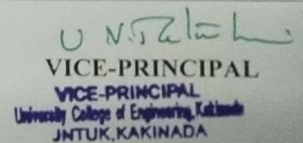 U N.
VICE-PRINCIPAL
VICE-PRINCIPAL
University College of Engineering, Kakinada
JNTUK, KAKINADA